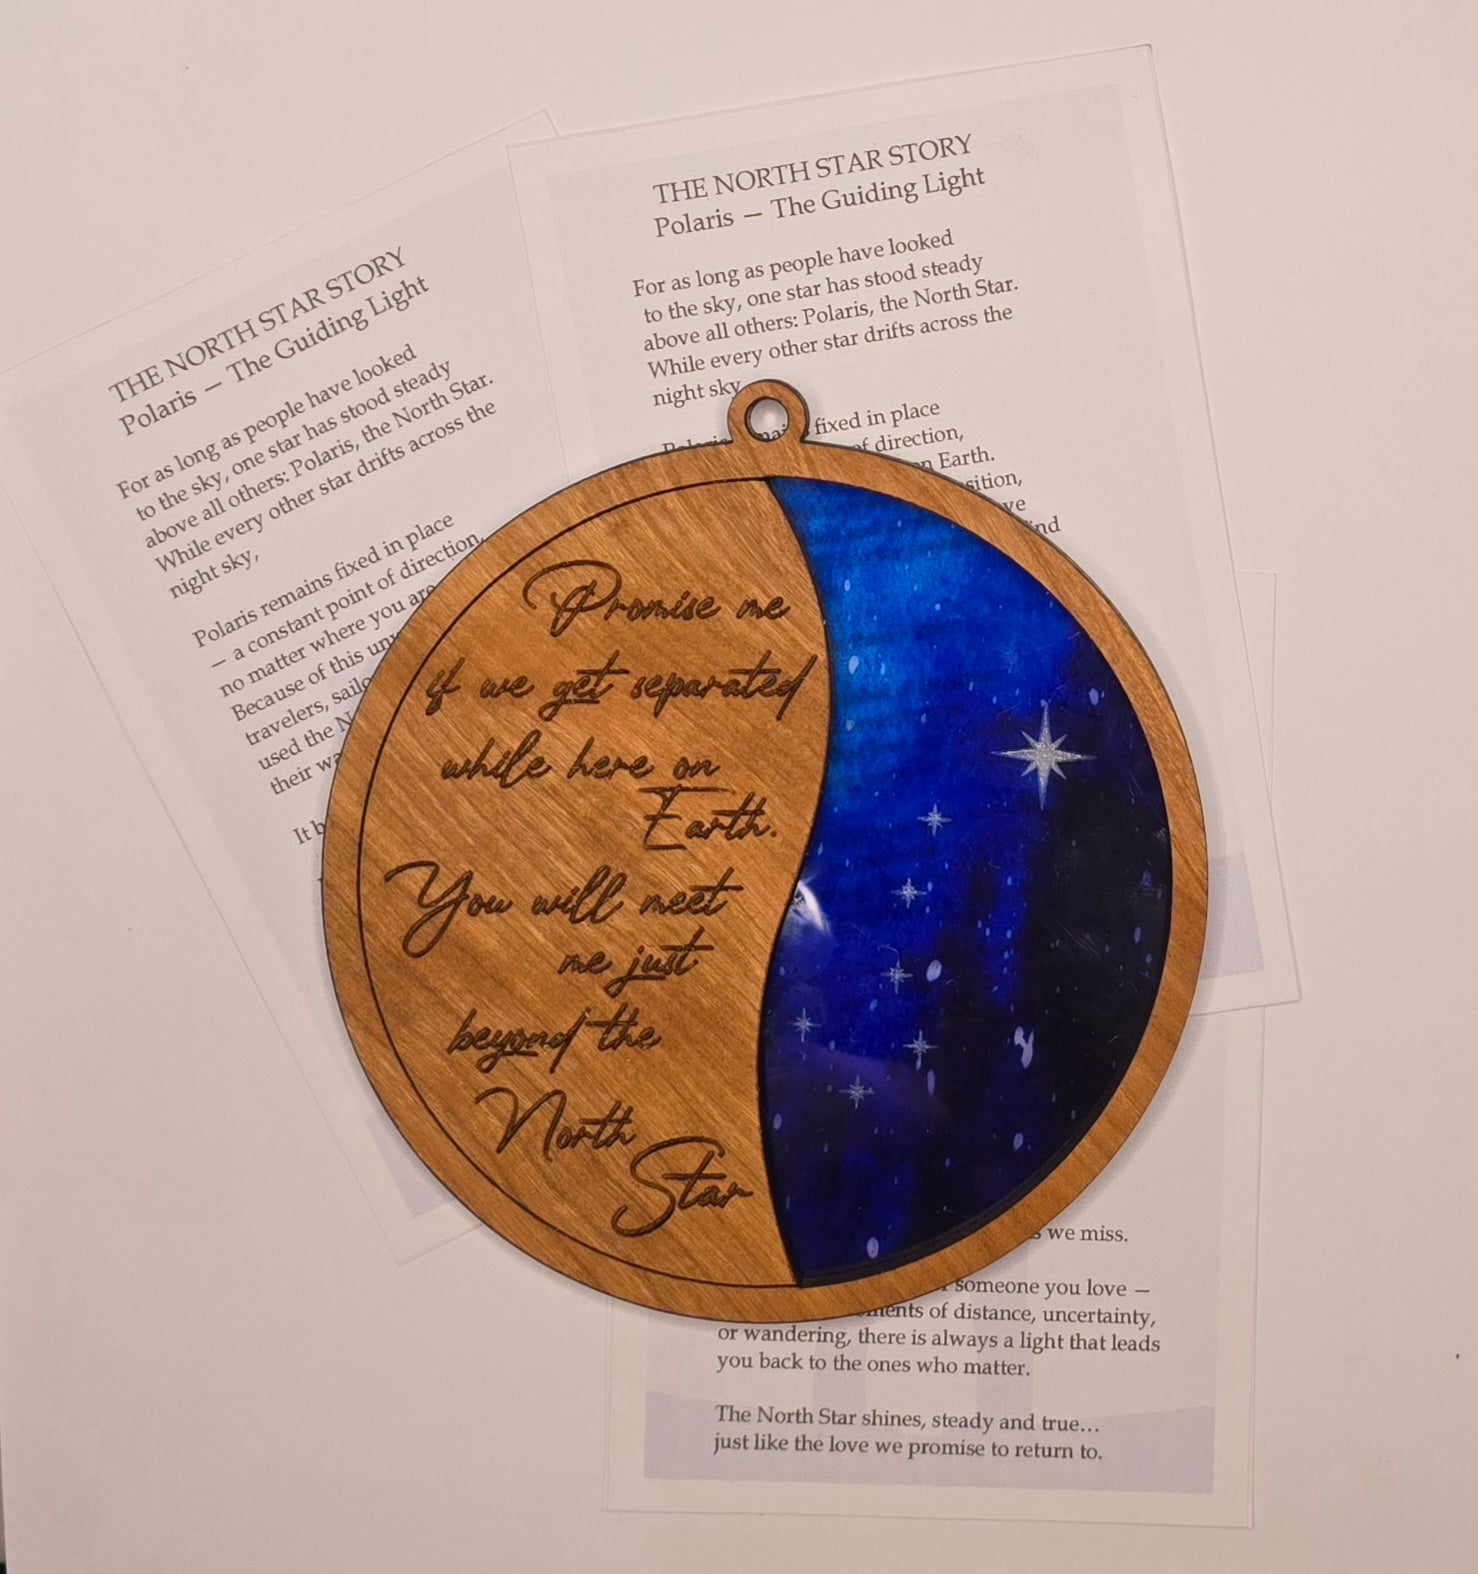 THE NORTH STAR STORY
Polaris — The Guiding Light
For as long as people have looked
to the sky, one star has stood steady
above all others: Polaris, the North Star.
While every other star drifts across the
night sky,
Polaris remains fixed in place
— a constant point of direction,
no matter where you are
Because of this
travelers,
used the
their
It
THE NORTH STAR STORY
Polaris — The Guiding Light
For as long as people have looked
to the sky, one star has stood steady
above all others: Polaris, the North Star.
While every other star drifts across the
night sky
fixed in place
of direction,
Earth.
Promise me
if we get separated
while here on
Earth.
You will meet
me just
beyond the
North
Star
we miss.
someone you love —
of distance, uncertainty,
or wandering, there is always a light that leads
you back to the ones who matter.
The North Star shines, steady and true...
just like the love we promise to return to.